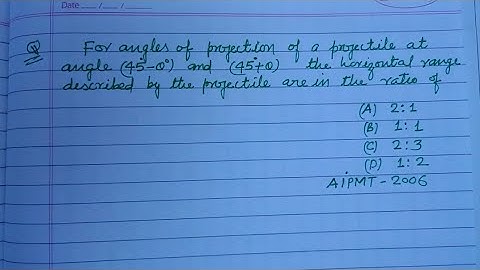 Date / /
Q For angles of projection of a projectile at
angle (45°-θ°) and (45°+θ) the horizontal range
described by the projectile are in the ratio of
(A) 2:1
(B) 1:1
(C) 2:3
(D) 1:2
AIPMT-2006